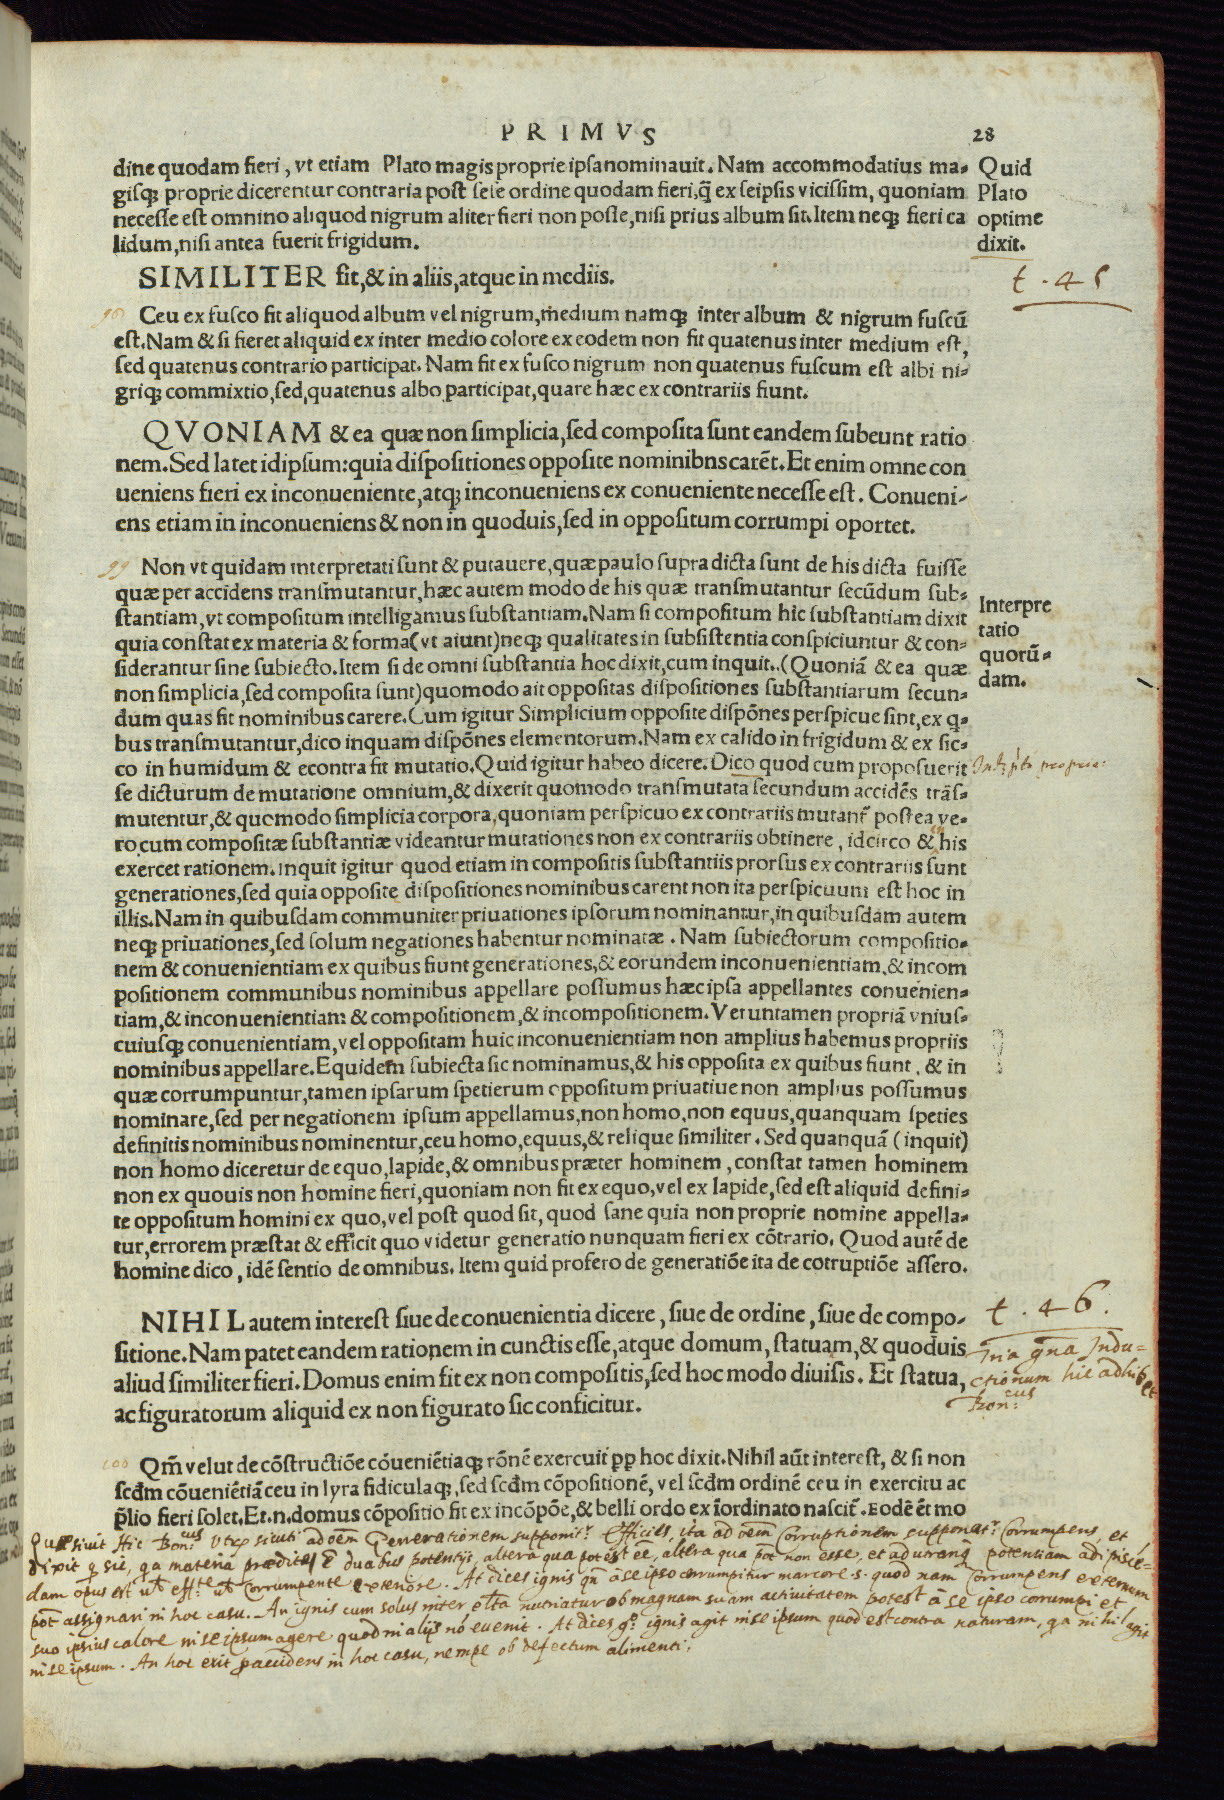 PRIMVS 28
dine quodam fieri, vt etiam Plato magis proprie ipsa nominauit. Nam accommodatius ma-
gisq; proprie dicerentur contraria post sese ordine quodam fieri, q̃ ex seipsis vicissim, quoniam
necesse est omnino aliquod nigrum aliter fieri non posse, nisi prius album sit. Item neq; fieri ca
lidum, nisi antea fuerit frigidum.
Quid
Plato
optime
dixit.
SIMILITER fit, & in aliis, atque in mediis.
t. 45
98
Ceu ex fusco fit aliquod album vel nigrum, medium namq; inter album & nigrum fuscũ
est. Nam & si fieret aliquid ex inter medio colore ex eodem non fit quatenus inter medium est,
sed quatenus contrario participat. Nam fit ex fusco nigrum non quatenus fuscum est albi ni-
griq; commixtio, sed, quatenus albo participat, quare hæc ex contrariis fiunt.
QVONIAM & ea quæ non simplicia, sed composita sunt eandem subeunt ratio
nem. Sed latet idipsum: quia dispositiones opposite nominibns carẽt. Et enim omne con
ueniens fieri ex inconueniente, atq; inconueniens ex conueniente necesse est. Conueni-
ens etiam in inconueniens & non in quoduis, sed in oppositum corrumpi oportet.
99
Non vt quidam interpretati sunt & putauere, quæ paulo supra dicta sunt de his dicta fuisse
quæ per accidens transmutantur, hæc autem modo de his quæ transmutantur secũdum sub-
stantiam, vt compositum intelligamus substantiam. Nam si compositum hic substantiam dixit
quia constat ex materia & forma (vt aiunt) neq; qualitates in subsistentia conspiciuntur & con-
siderantur sine subiecto. Item si de omni substantia hoc dixit, cum inquit.. (Quoniã & ea quæ
non simplicia, sed composita sunt) quomodo ait oppositas dispositiones substantiarum secun-
dum quas fit nominibus carere. Cum igitur Simplicium opposite dispõnes perspicue sint, ex q̃-
bus transmutantur, dico inquam dispõnes elementorum. Nam ex calido in frigidum & ex sic-
co in humidum & econtra fit mutatio. Quid igitur habeo dicere. Dico quod cum proposuerit
se dicturum de mutatione omnium, & dixerit quomodo transmutata secundum accidẽs trãs-
mutentur, & quomodo simplicia corpora, quoniam perspicuo ex contrariis mutant̃ postea ve-
ro cum compositæ substantiæ videantur mutationes non ex contrariis obtinere, idcirco & his
exercet rationem. inquit igitur quod etiam in compositis substantiis prorsus ex contrariis sunt
generationes, sed quia opposite dispositiones nominibus carent non ita perspicuum est hoc in
illis. Nam in quibusdam communiter priuationes ipsorum nominantur, in quibusdam autem
neq; priuationes, sed solum negationes habentur nominatæ. Nam subiectorum compositio-
nem & conuenientiam ex quibus fiunt generationes, & eorundem inconuenientiam, & incom
positionem communibus nominibus appellare possumus hæc ipsa appellantes conuenien-
tiam, & inconuenientiam & compositionem, & incompositionem. Veruntamen propriã vnius-
cuiusq; conuenientiam, vel oppositam huic inconuenientiam non amplius habemus propriis
nominibus appellare. Equidem subiecta sic nominamus, & his opposita ex quibus fiunt, & in
quæ corrumpuntur, tamen ipsarum spetierum oppositum priuatiue non amplius possumus
nominare, sed per negationem ipsum appellamus, non homo, non equus, quanquam speties
definitis nominibus nominentur, ceu homo, equus, & relique similiter. Sed quanquã (inquit)
non homo diceretur de equo, lapide, & omnibus præter hominem, constat tamen hominem
non ex quouis non homine fieri, quoniam non fit ex equo, vel ex lapide, sed est aliquid defini-
te oppositum homini ex quo, vel post quod sit, quod sane quia non proprie nomine appella-
tur, errorem præstat & efficit quo videtur generatio nunquam fieri ex cõtrario. Quod autẽ de
homine dico, idẽ sentio de omnibus. Item quid profero de generatiõe ita de cotruptiõe assero.
Interpre
tatio
quorũ-
dam.
propria:
NIHIL autem interest siue de conuenientia dicere, siue de ordine, siue de compo-
sitione. Nam patet eandem rationem in cunctis esse, atque domum, statuam, & quoduis
aliud similiter fieri. Domus enim fit ex non compositis, sed hoc modo diuisis. Et statua,
ac figuratorum aliquid ex non figurato sic conficitur.
t. 46.
Tria gña Indu-
ctionum hic adhibet
Bon:cus
100
Qm̃ velut de cõstructiõe cõueniẽtiaq; rõnẽ exercuit ꝓp hoc dixit. Nihil aũt interest, & si non
scđm cõueniẽtiã ceu in lyra fidiculaq;, sed scđm cõpositionẽ, vel scđm ordinẽ ceu in exercitu ac
p̃lio fieri solet. Et. n. domus cõpositio fit ex incõpõe, & belli ordo ex ĩordinato nascit̃. Eodẽ ẽt mo
Quæsiuit Hic Bon:cus Vtrũ sicuti ad oẽm Generationem supponit.r Efficiẽs, ita ad oẽm Corruptionem supponat.r Corrumpens, et
Dixit q̃ sic, qa materia prædita ẽ duabus potentijs, altera qua potest eẽ, altera qua põt non esse, et ad utramq; potentiam adipiscẽ-
dam opus est Corrumpente exteriore. At dices ignis qñ à se ipso corrumpitur marcore s. quod nam Corrumpens externum
põt assignari in hoc casu. An ignis cum solus inter nutriatur ob magnam suam actiuitatem potest à se ipso corrumpi et
suo ipsius calore in se ipsum agere quod in alijs nõ euenit. At dices ignis agit in se ipsum quod est contra naturam, qa nihil agit
in se ipsum. An hoc erit p accidens in hoc casu, nempe ob defectum alimenti;